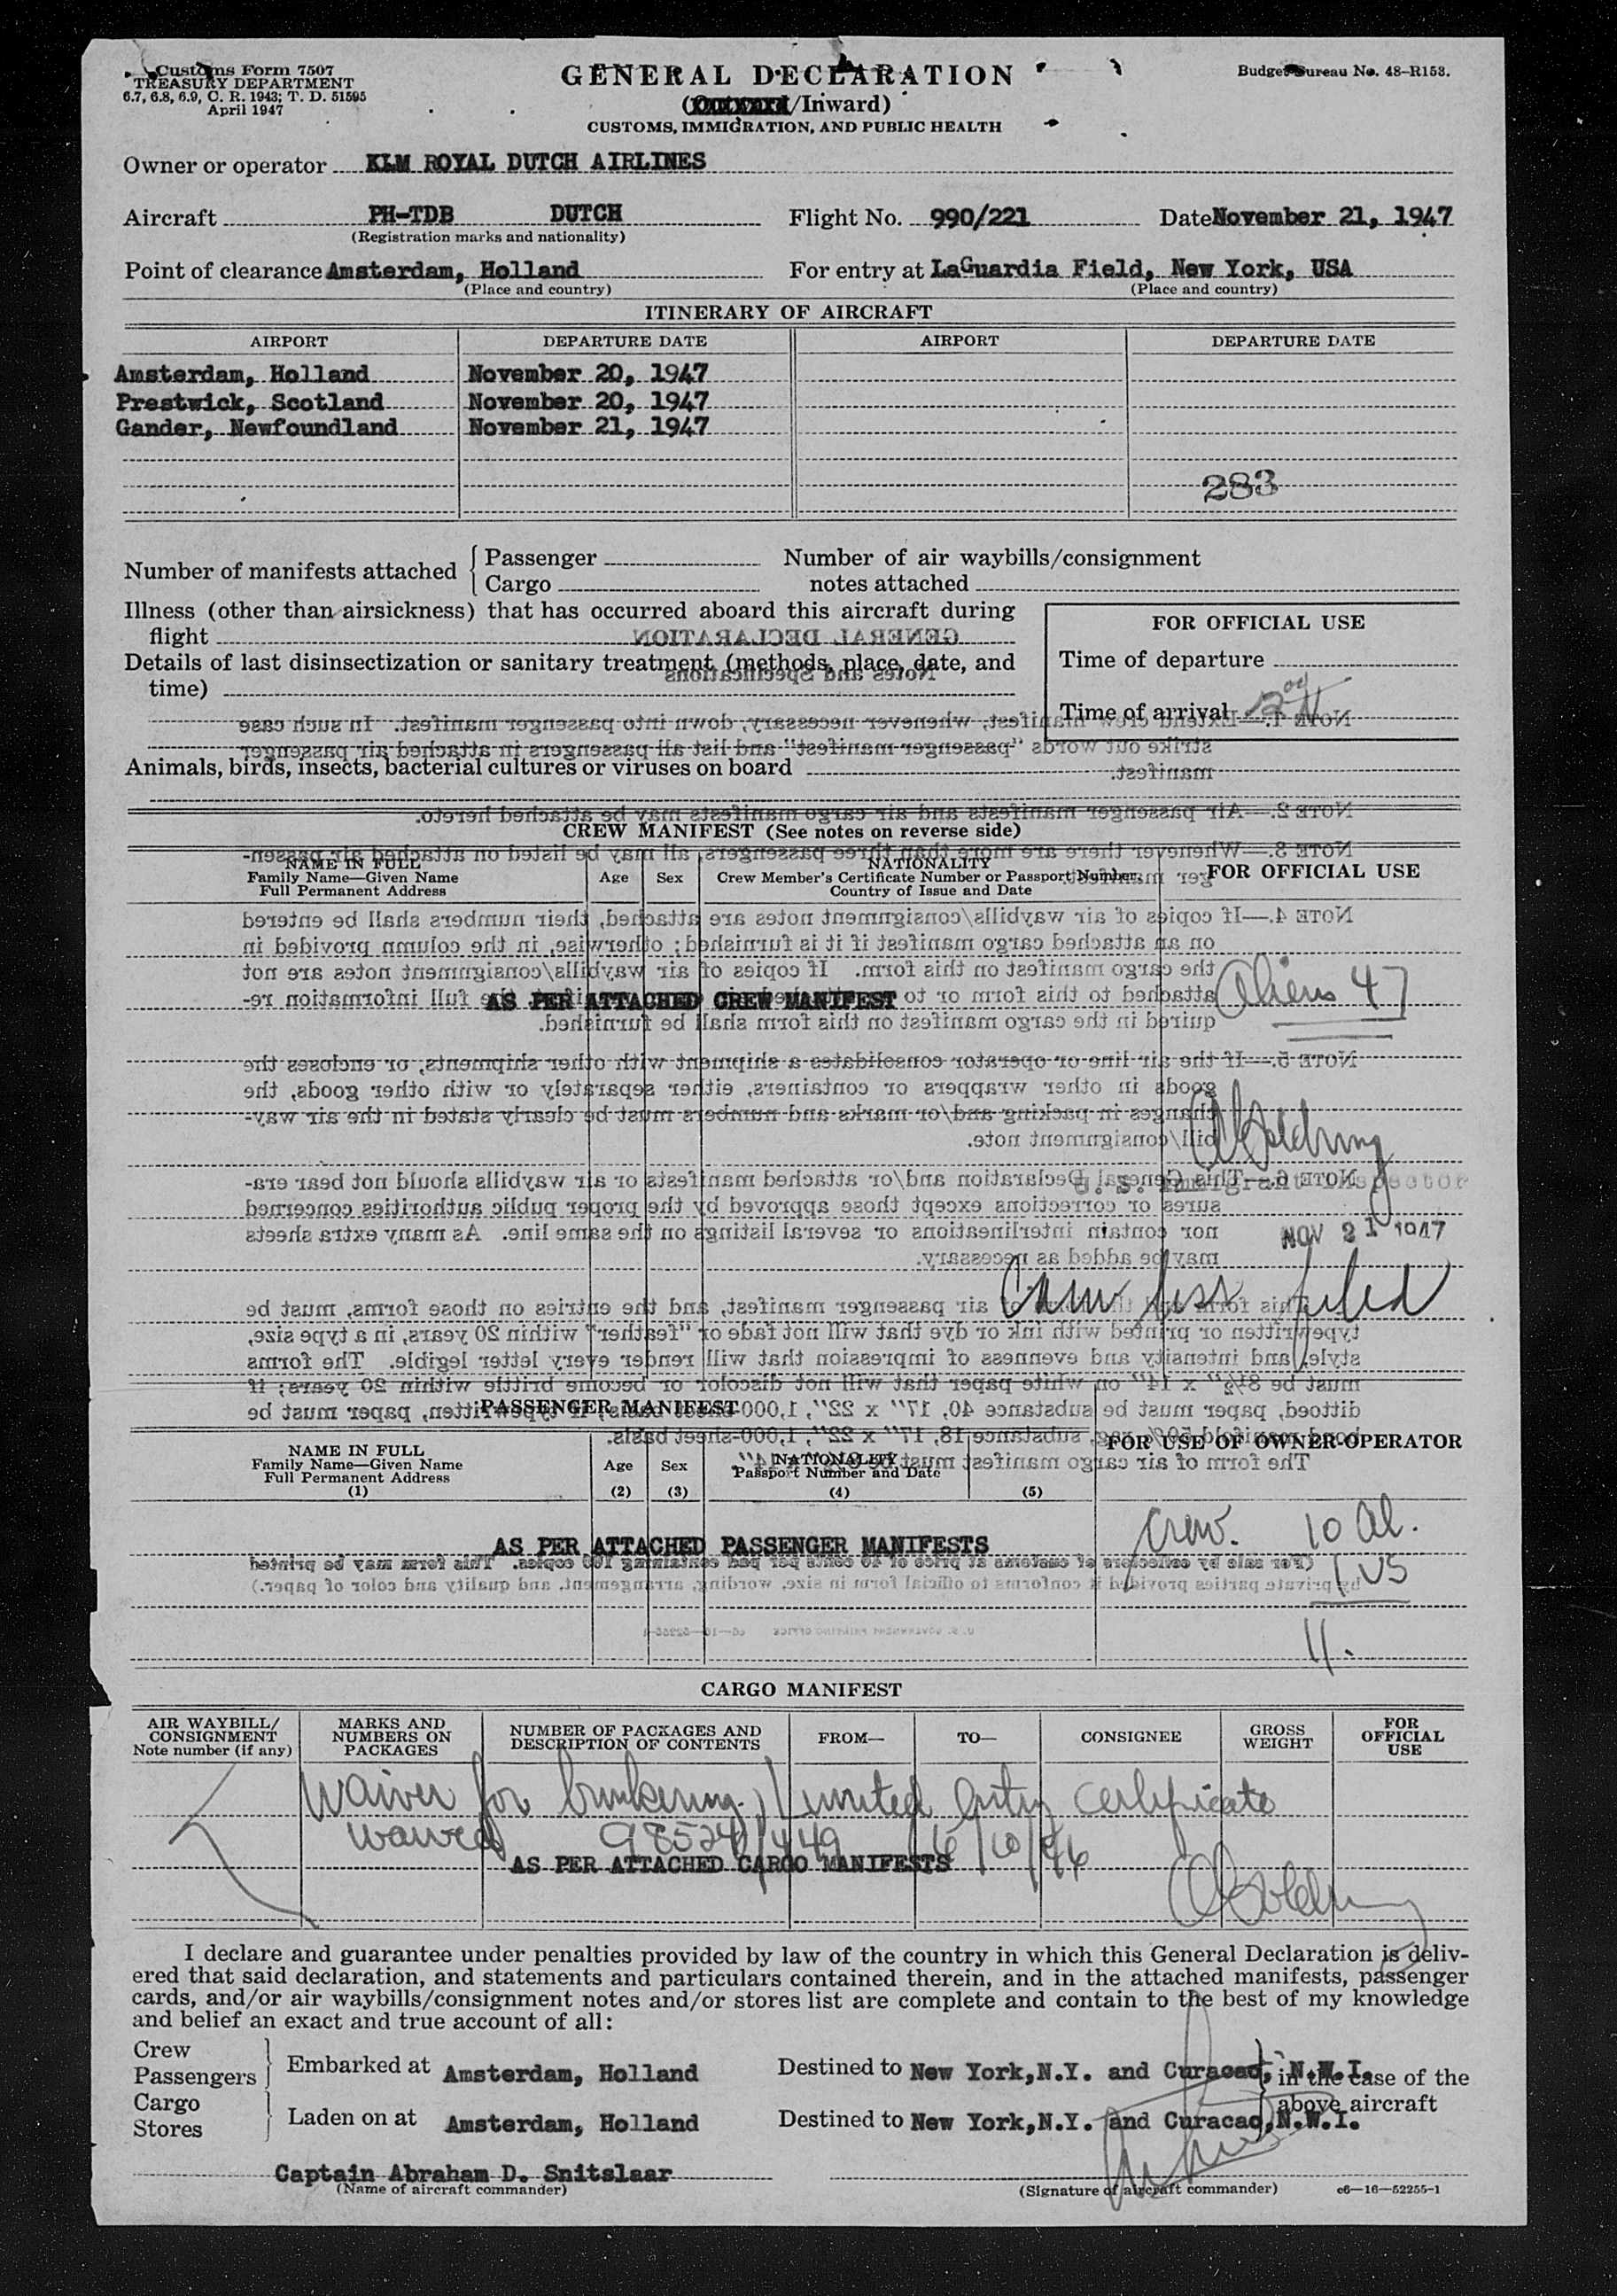 Customs Form 7507
TREASURY DEPARTMENT
6.7, 6.8, 6.9, C. R. 1943; T. D. 51595
April 1947
GENERAL DECLARATION
(Outward/Inward)
CUSTOMS, IMMIGRATION, AND PUBLIC HEALTH
Budget Bureau No. 48-R153.
Owner or operator KLM ROYAL DUTCH AIRLINES
Aircraft PH-TDB DUTCH Flight No. 990/221 Date November 21, 1947
(Registration marks and nationality)
Point of clearance Amsterdam, Holland For entry at LaGuardia Field, New York, USA
(Place and country) (Place and country)
ITINERARY OF AIRCRAFT
AIRPORT DEPARTURE DATE AIRPORT DEPARTURE DATE
Amsterdam, Holland November 20, 1947
Prestwick, Scotland November 20, 1947
Gander, Newfoundland November 21, 1947
283
Number of manifests attached { Passenger
Cargo
Number of air waybills/consignment
notes attached
Illness (other than airsickness) that has occurred aboard this aircraft during
flight
Details of last disinsectization or sanitary treatment (methods, place, date, and
time)
FOR OFFICIAL USE
Time of departure
Time of arrival
Animals, birds, insects, bacterial cultures or viruses on board
CREW MANIFEST (See notes on reverse side)
NAME IN FULL
Family Name—Given Name
Full Permanent Address
Age
Sex
NATIONALITY
Crew Member's Certificate Number or Passport Number
Country of Issue and Date
FOR OFFICIAL USE
AS PER ATTACHED CREW MANIFEST
Aliens 47
U. S. Immigrant Inspector
NOV 21 1947
Crew list filed
PASSENGER MANIFEST
NAME IN FULL
Family Name—Given Name
Full Permanent Address
(1)
Age
(2)
Sex
(3)
NATIONALITY
Passport Number and Date
(4) (5)
FOR USE OF OWNER-OPERATOR
AS PER ATTACHED PASSENGER MANIFESTS
Crew. 10 Al.
1 US
11.
CARGO MANIFEST
AIR WAYBILL/
CONSIGNMENT
Note number (if any)
MARKS AND
NUMBERS ON
PACKAGES
NUMBER OF PACKAGES AND
DESCRIPTION OF CONTENTS
FROM—
TO—
CONSIGNEE
GROSS
WEIGHT
FOR
OFFICIAL
USE
Waiver for bunkering, Limited Entry certificate
waived 98524/449 6/10/46
AS PER ATTACHED CARGO MANIFESTS
I declare and guarantee under penalties provided by law of the country in which this General Declaration is deliv-
ered that said declaration, and statements and particulars contained therein, and in the attached manifests, passenger
cards, and/or air waybills/consignment notes and/or stores list are complete and contain to the best of my knowledge
and belief an exact and true account of all:
Crew
Passengers } Embarked at Amsterdam, Holland Destined to New York,N.Y. and Curacao, N.W.I. in the case of the
Cargo
Stores } Laden on at Amsterdam, Holland Destined to New York,N.Y. and Curacao,N.W.I. above aircraft
Captain Abraham D. Snitslaar
(Name of aircraft commander) (Signature of aircraft commander) c6—16—52255-1